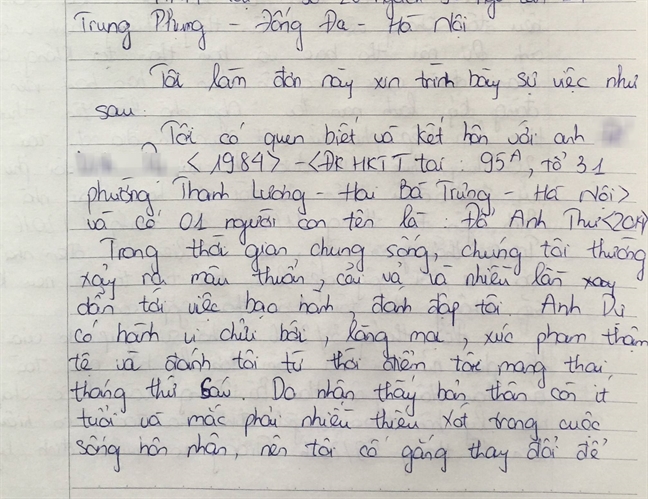 Trung Phụng - Đống Đa - Hà Nội
Tôi làm đơn này xin trình bày sự việc như
sau:
Tôi có quen biết và kết hôn với anh
<1984> - <ĐK HKTT tại: 95A, tổ 31
phường Thanh Lương - Hai Bà Trưng - Hà Nội>
và có 01 người con tên là: Đỗ Anh Thư
Trong thời gian chung sống, chúng tôi thường
xảy ra mâu thuẫn, cãi vã và nhiều lần xảy
dẫn tới việc bạo hành, đánh đập tôi. Anh Dự
có hành vi chửi bới, lăng mạ, xúc phạm thậm
tệ và đánh tôi từ thời điểm tôi mang thai
tháng thứ sáu. Do nhận thấy bản thân còn ít
tuổi và mắc phải nhiều thiếu xót trong cuộc
sống hôn nhân, nên tôi cố gắng thay đổi để